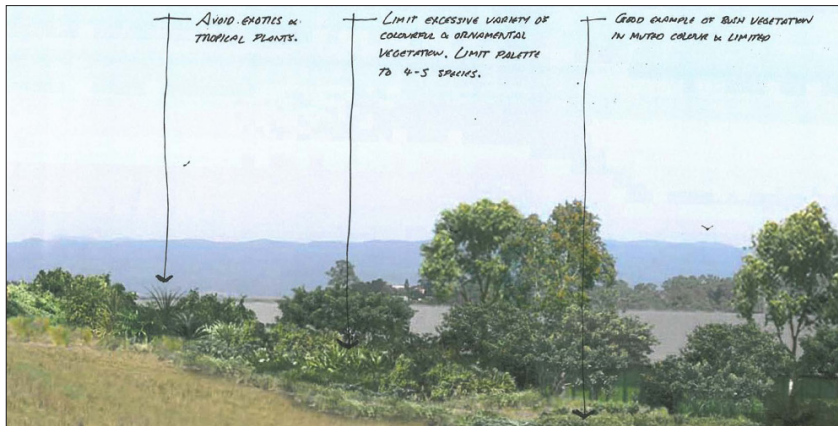 AVOID EXOTICS &
TROPICAL PLANTS.
LIMIT EXCESSIVE VARIETY OF
COLOURFUL & ORNAMENTAL
VEGETATION. LIMIT PALETTE
TO 4-5 SPECIES.
GOOD EXAMPLE OF BUSH VEGETATION
IN MUTED COLOUR & LIMITED